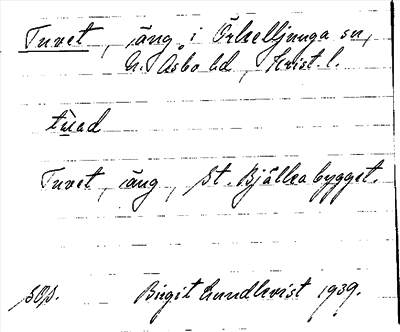 Tuvet, äng i Örkelljunga sn,
N. Åsbo hd, Krist. l.
tùad
Tuvet, äng, St. Bjällabygget.
søs. Birgit Lundkvist 1939.